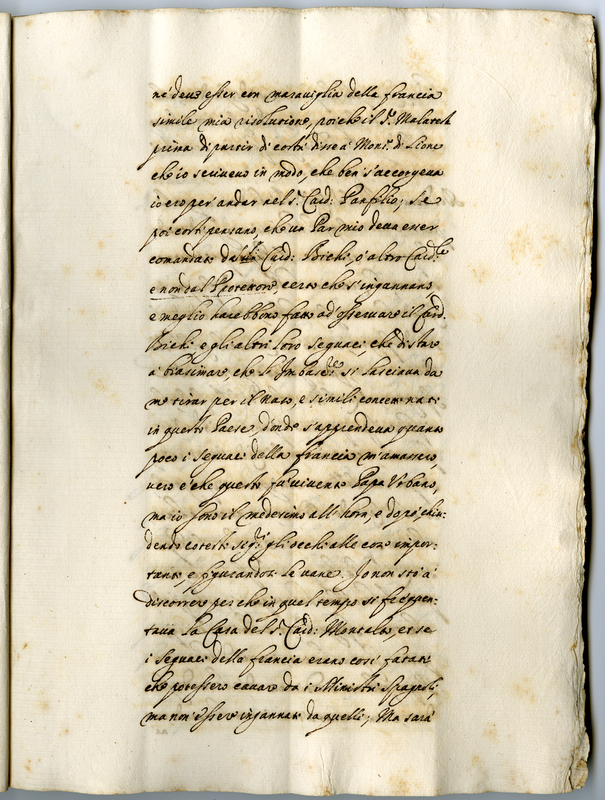 ne' deue esser con marauiglia della francia
simile mia risolutione, poiche il S.r Malatesti
prima di partir di costì disse à Mons.r di Lione
che io scriueuo in modo, che ben s'accorgeua
io ero per andar nel S. Card: Panfilio; Se
poi costì pensano, che un Par mio deua esser
comandato dalli Card: Bichi, ò altro Card.le
e non dal Protettore, certo che s'ingannano
e meglio harebbono fatto ad' osseruare il Card.
Bichi e gli altri loro seguaci, che di stare
à biasimare, che l' Imbasc.re si lasciaua da
me tirar per il Naso, e simili concetti nati
in questo Paese, donde s'apprendeua quanto
poco i seguaci della francia m'amassero,
uero è che questo fu' uiuente Papa Vrbano,
ma io sono il medesimo all' hora, e dopò, chiu-
dendo cotesti sig.ri gli occhi alle cose impor-
tanti, e figurandosi le uane. Io non stò à
discorrere perche in quel tempo si frequen-
taua la Casa del S. Card: Montalto, et se
i seguaci della francia erano così fatati
che potessero cauare da i Ministri Spagnoli,
ma non essere ingannati da quelli; Ma sarà